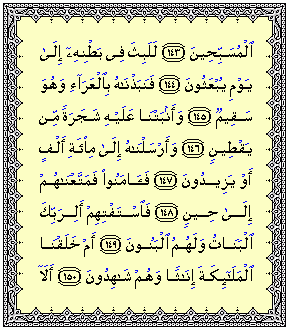 ٱلْمُسَبِّحِينَ ﴿١٤٣﴾ لَلَبِثَ فِى بَطْنِهِۦٓ إِلَىٰ
يَوْمِ يُبْعَثُونَ ﴿١٤٤﴾ فَنَبَذْنَٰهُ بِٱلْعَرَآءِ وَهُوَ
سَقِيمٌ ﴿١٤٥﴾ وَأَنۢبَتْنَا عَلَيْهِ شَجَرَةً مِّن
يَقْطِينٍ ﴿١٤٦﴾ وَأَرْسَلْنَٰهُ إِلَىٰ مِا۟ئَةِ أَلْفٍ
أَوْ يَزِيدُونَ ﴿١٤٧﴾ فَـَٔامَنُوا۟ فَمَتَّعْنَٰهُمْ
إِلَىٰ حِينٍ ﴿١٤٨﴾ فَٱسْتَفْتِهِمْ أَلِرَبِّكَ
ٱلْبَنَاتُ وَلَهُمُ ٱلْبَنُونَ ﴿١٤٩﴾ أَمْ خَلَقْنَا
ٱلْمَلَٰٓئِكَةَ إِنَٰثًا وَهُمْ شَٰهِدُونَ ﴿١٥٠﴾ أَلَآ